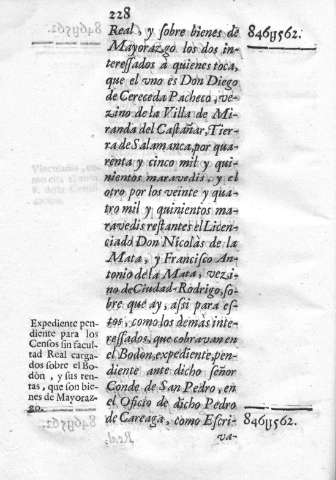 228
Real, y sobre bienes de
Mayorazgo los dos in-
teressados à quienes toca,
que el vno es Don Diego
de Cereceda Pacheco, ve-
zino de la Villa de Mi-
randa del Castañar, Tier-
ra de Salamanca, por qua-
renta y cinco mil y qui-
nientos maravedis, y el
otro por los veinte y qua-
tro mil y quinientos ma-
ravedis restantes el Licen-
ciado Don Nicolàs de la
Mata, y Francisco An-
tonio de la Mata, vezi-
no de Ciudad-Rodrigo, so-
bre que ay, assi para es-
tos, como los demàs inte-
ressados, que cobravan en
el Bodòn, expediente, pen-
diente ante dicho señor
Conde de San Pedro, en
el Oficio de dicho Pedro
de Careaga, como Escri-
va-
846ų562.
Expediente pen-
diente para los
Censos sin facul-
tad Real carga-
dos sobre el Bo-
dòn, y sus ren-
tas, que son bie-
nes de Mayoraz-
go.
846ų562.